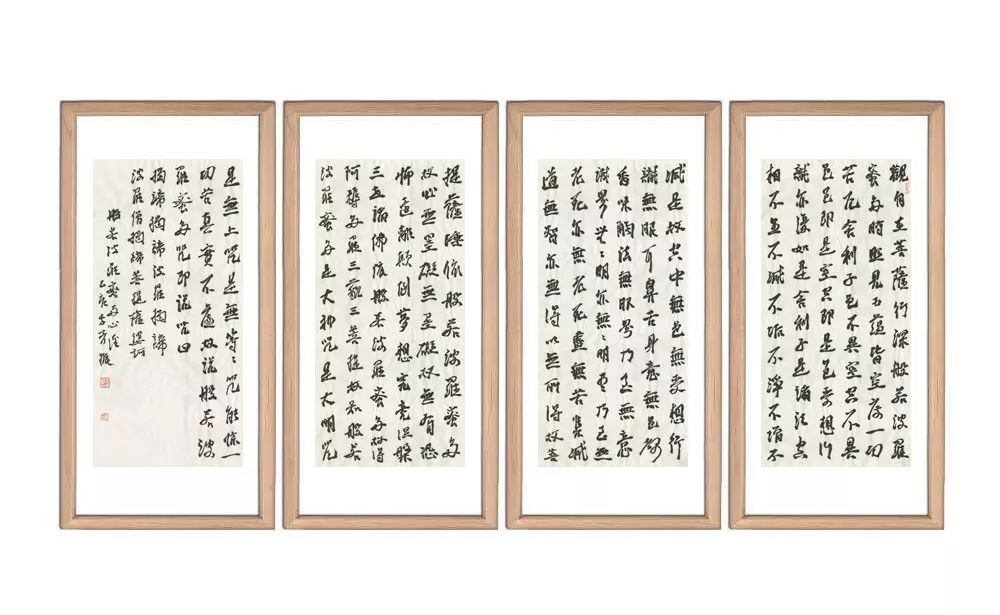 觀自在菩薩行深般若波羅
蜜多時照見五蘊皆空度一切
苦厄舍利子色不異空空不異
色色即是空空即是色受想行
識亦復如是舍利子是諸法空
相不生不滅不垢不淨不增不
減是故空中無色無受想行
識無眼耳鼻舌身意無色聲
香味觸法無眼界乃至無意
識界無〻明亦無〻明盡乃至無
老死亦無老死盡無苦集滅
道無智亦無得以無所得故菩
提薩埵依般若波羅蜜多
故心無罣礙無罣礙故無有恐
怖遠離顛倒夢想究竟涅槃
三世諸佛依般若波羅蜜多故得
阿耨多羅三藐三菩提故知般若
波羅蜜多是大神咒是大明咒
是無上咒是無等〻咒能除一
切苦真實不虛故說般若波
羅蜜多咒即說咒曰
揭諦揭諦波羅揭諦
波羅僧揭諦菩提薩婆訶
般若波羅蜜多心經